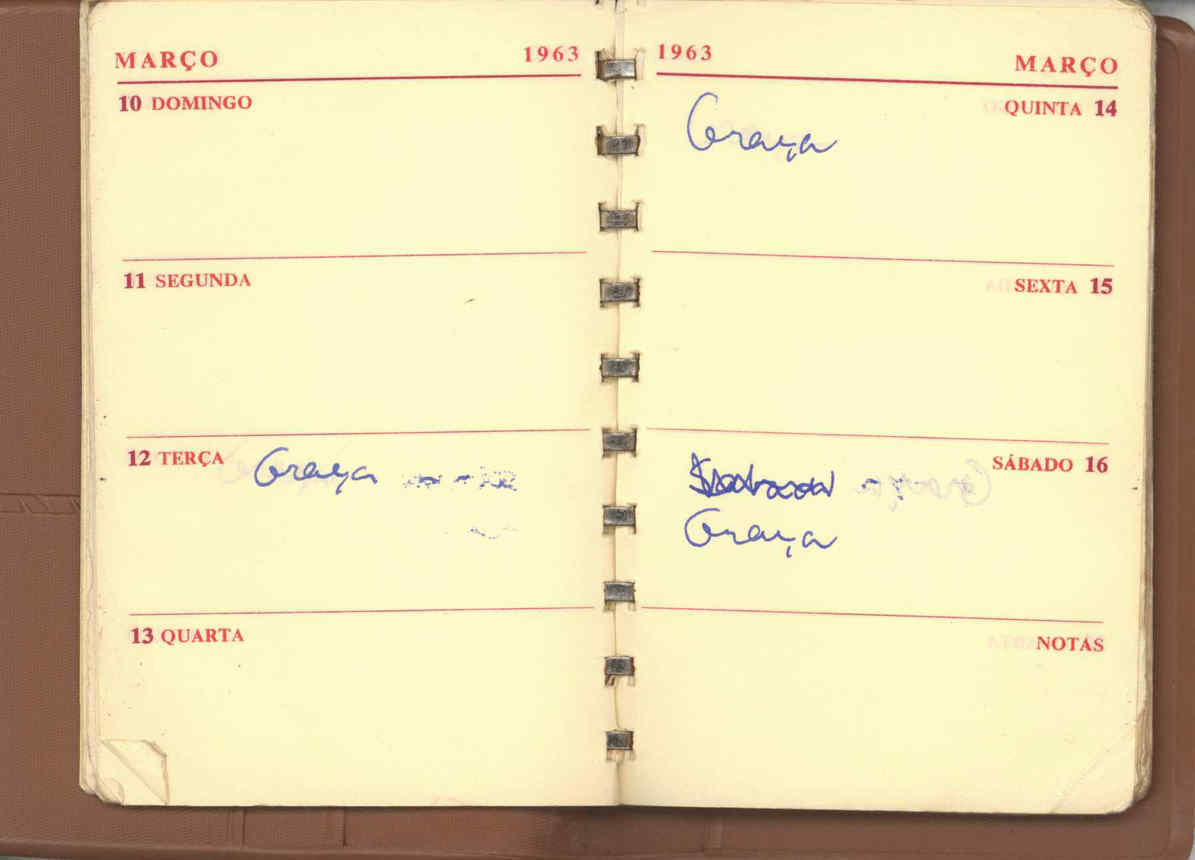 MARÇO 1963
10 DOMINGO
11 SEGUNDA
12 TERÇA Graça
13 QUARTA
1963 MARÇO
QUINTA 14
Graça
SEXTA 15
SÁBADO 16
Graça
NOTAS